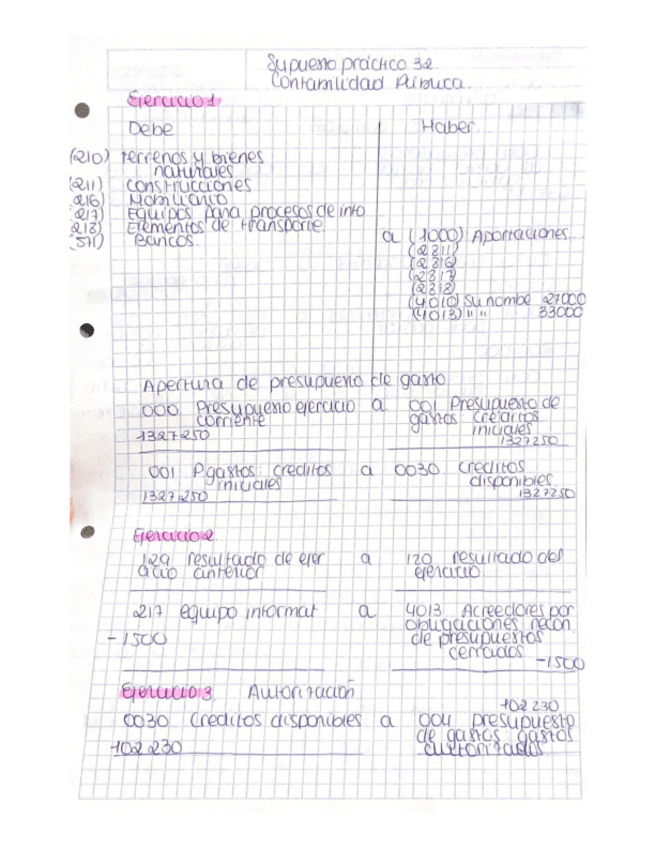 Supuesto práctico 32.
Contabilidad Pública.
Ejercicio 1
Debe Haber
(210) terrenos y bienes
naturales
(211) construcciones
216) Mobiliario
217) Equipos para procesos de info
218) Elementos de transporte.
571) Bancos.
a (1000) Aportaciones.
(2811)
(2816)
(2817)
(2818)
(4010) Su nombe 27000
(4013) " " 33000
Apertura de presupuesto de gasto
000 Presupuesto ejercicio a 001 Presupuesto de
corriente gastos créditos
iniciales
1327250 1327250
001 P.gastos: creditos a 0030 creditos
iniciales disponibles
1327250 1327250
Ejercicio 2
129 resultado de ejer a 120 resultado del
cicio anterior ejercicio
217 equipo informat a 4013 Acreedores por
obligaciones recon.
-1500 de presupuestos
cerrados
-1500
Ejercicio 3 Autorización
102 230
0030 Creditos disponibles a 004 presupuesto
de gastos: gastos
102 230 autorizados